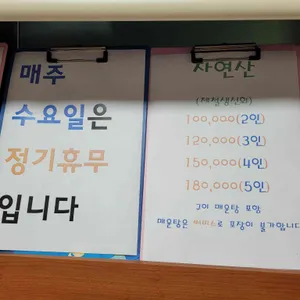 매주
수요일은
정기휴무
입니다
자연산
(제철생선회)
100,000(2인)
120,000(3인)
150,000(4인)
180,000(5인)
고기 매운탕 포함
매운탕은 서비스로 포장이 불가합니다